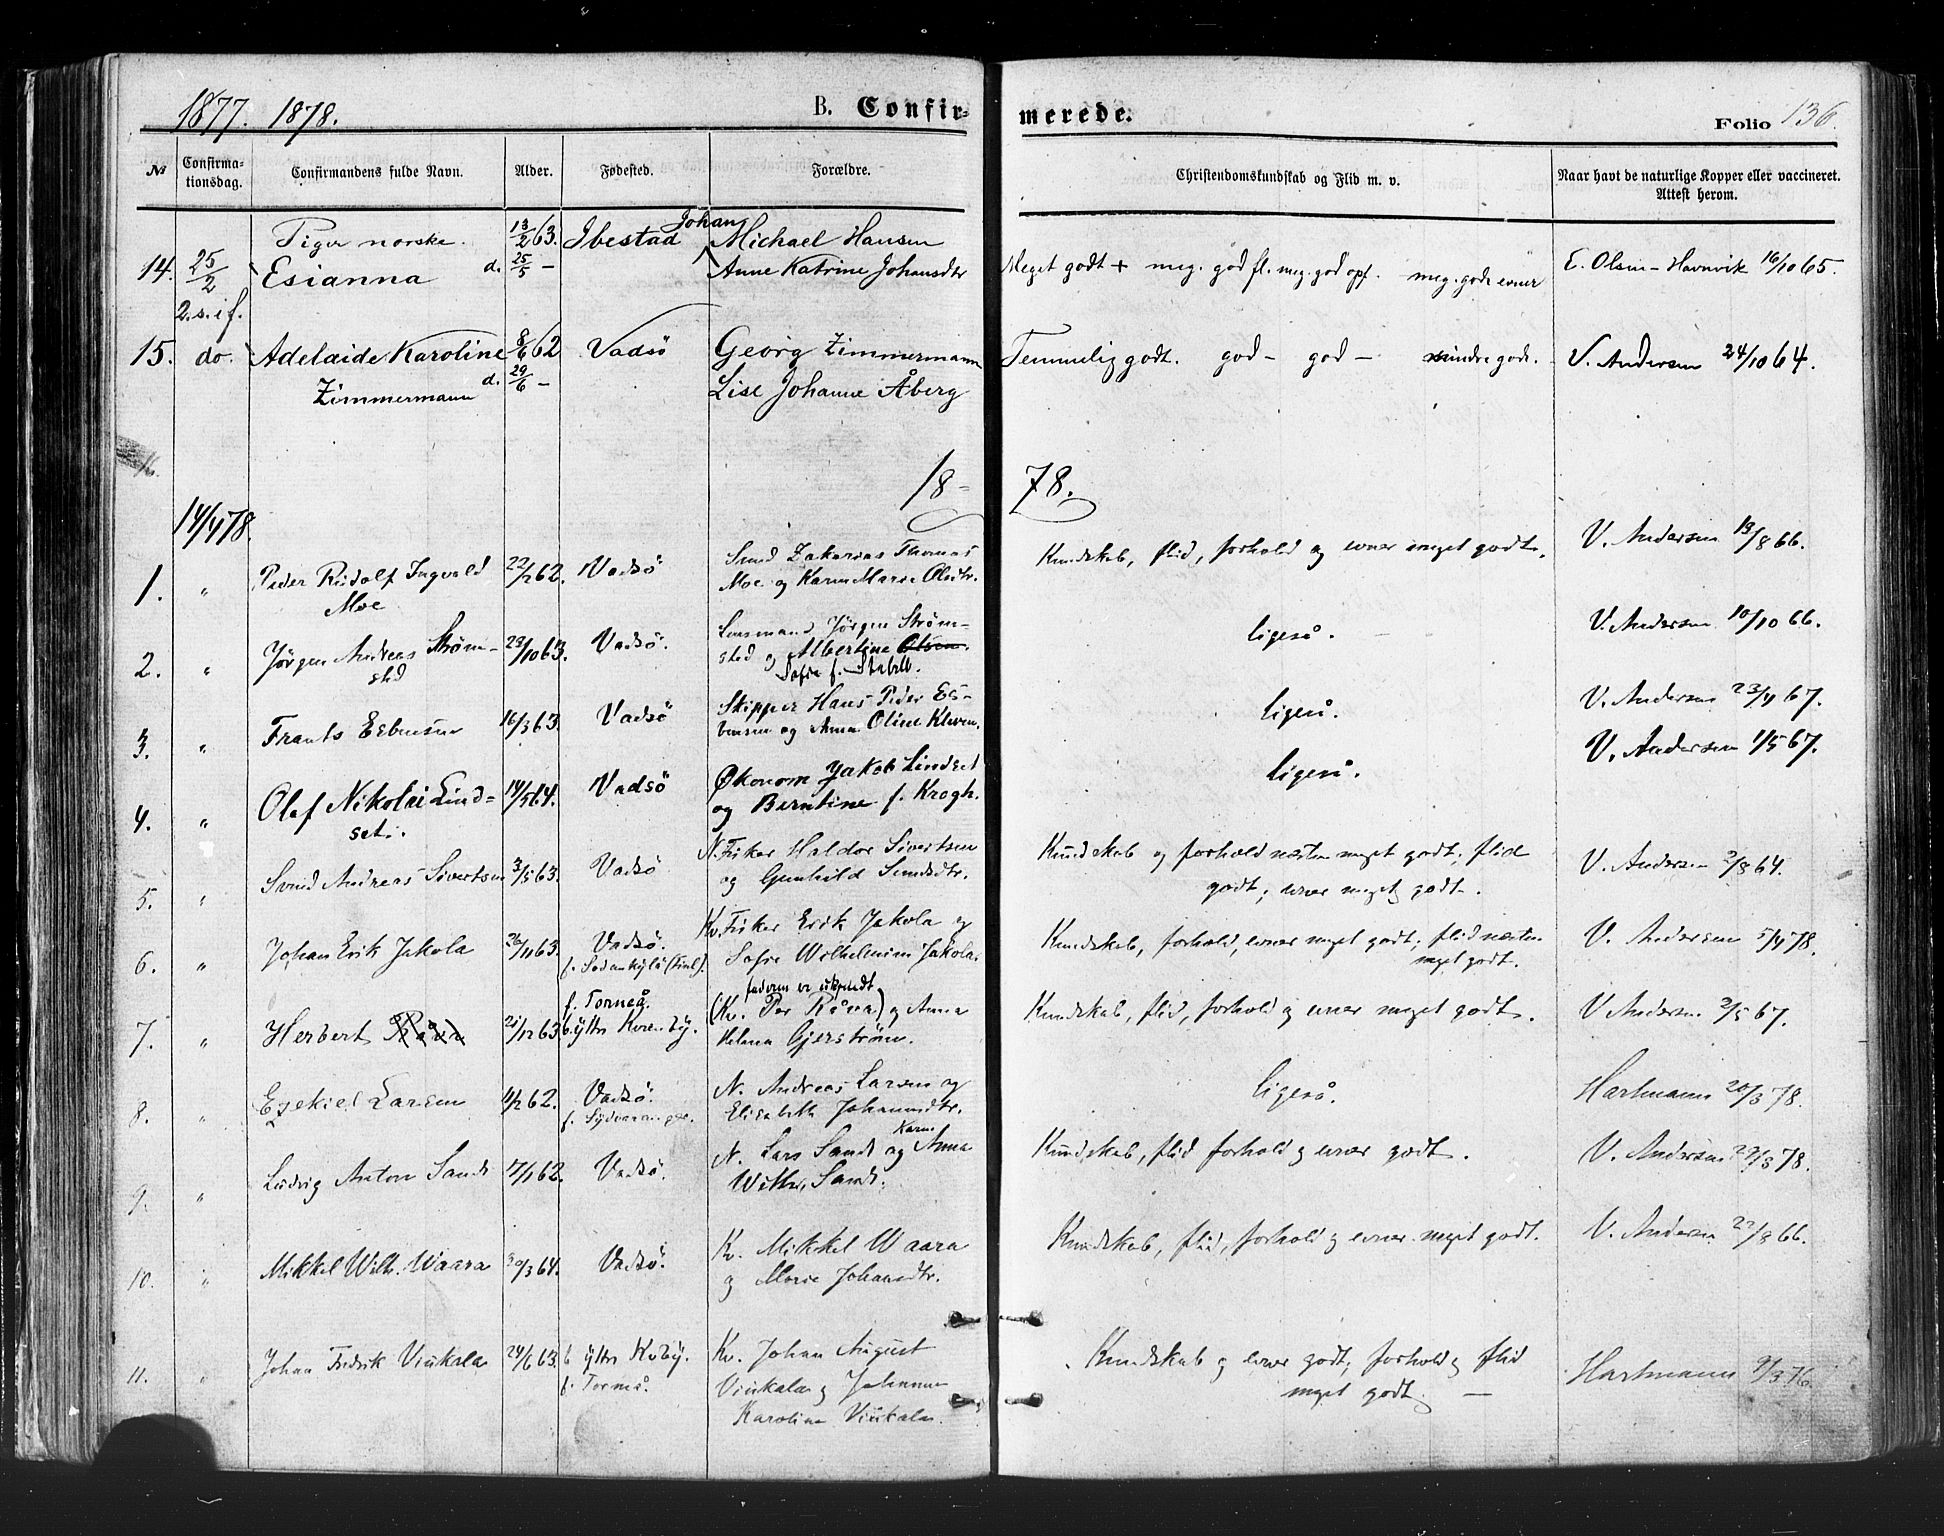 1877. 1878. B. Confir- merede. Folio 136.
№ Confirma-tionsdag. Confirmandens fulde Navn. Alder. Fødested. Forældre. Christendomskundskab og Flid m. v. Naar havt de naturlige Kopper eller vaccineret. Attest herom.
Piger norske. 13/2 63. Ibestad Johan Michael Hansen
14. 25/2 Esianna d. 25/5 - Anne Katrine Johansdtr Meget godt + meg. god fl. meg. god opf. meg. gode evner E. Olsen - Havnvik 16/10 65.
2. s. i f.
15. do. Adelaide Karoline 8/6 62 Vadsö Georg Zimmermann Temmelig godt. god - god - mindre gode. V. Andersen 24/10 64.
Zimmermann d. 29/6 - Lise Johanne Åberg
16.
18- 78.
14/4 78.
1. " Peder Rudolf Ingvald 22/12 62. Vadsö Smed Zakarias Thomas Kundskab, flid, forhold og evner meget godt. V. Andersen 13/8 66.
Moe Moe og Karen Marie Olsdtr.
2. " Jörgen Andreas Strøm- 23/10 63. Vadsö. Lensmand Jörgen Strøm- ligeså. V. Andersen 10/10 66.
sted sted og Albertine Olsen.
Sofie f. Stabell.
3. " Frants Esbensen 16/3 63. Vadsö Skipper Hans Peder Es- ligeså. V. Andersen 23/4 67.
bensen og Anna Oline Kleven.
4. " Olaf Nikolai Lind- 14/5 64. Vadsö Økonom Jakob Lindset ligeså. V. Andersen 1/5 67.
set. og Berntine f. Krogh.
5. " Svend Andreas Sivertsen 3/5 63. Vadsö N. Fisker Haldor Sivertsen Kundskab og forhold næsten meget godt; flid V. Andersen 2/8 64.
og Gunhild Svendsdtr. godt; evner meget godt.
6. " Johan Erik Jakola 26/11 63. Vadsö. Kv. Fisker Erik Jakola og Kundskab, forhold, evner meget godt; flid næsten V. Andersen 5/4 78.
f. Sodankylä (Finl). Sofie Wilhelmine Jakola. meget godt.
faderen er ukjendt
f. Torneå.
7. " Herbert 21/12 63 b. yttre Korenby. (Kv. Per Råva) og Anna Kundskab, flid, forhold og evner meget godt. V Andersen 2/5 67.
Helena Gjerström.
8. " Ezekiel Larsen 4/2 62. Vadsö. N. Andreas Larsen og ligeså. Hartmann 20/3 78.
f. Sydvaranger. Elisabeth Johannesdtr.
Karen
9. " Ludvig Anton Sands 7/1 62. Vadsö. N. Lars Sands og Anna Kundskab, flid forhold og evner godt. V. Andersen 27/3 78.
Wilh. Sands.
10. " Mikkel Wilh. Waara 30/3 64. Vadsö. Kv. Mikkel Waara Kundskab, flid, forhold og evner meget godt. V. Andersen 22/8 66.
og Marie Johansdtr.
11. " Johan Fredrik Viinkala 24/6 63. b yttre Kvby. Kv. Johan August Kundskab og evner godt; forhold og flid Hartmann 9/3 76.
f. Torneå. Viinkala og Johanna meget godt. -
Karolina Viinkala.